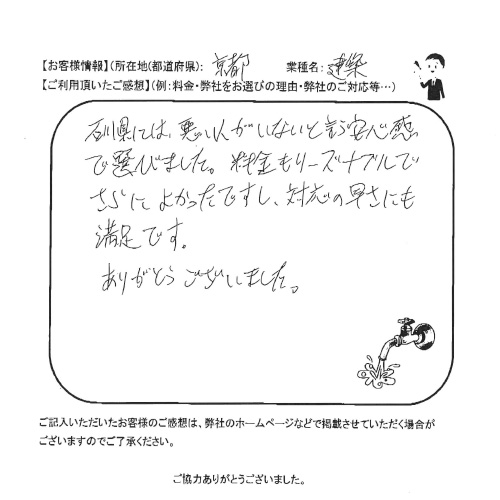 【お客様情報】(所在地(都道府県): 京都 業種名: 建築
【ご利用頂いたご感想】(例:料金・弊社をお選びの理由・弊社のご対応等…)
石川県には、悪い人がいないと言う安心感
で選びました。料金もリーズナブルで
さらに よかったですし、対応の早さにも
満足です。
ありがとうございました。
ご記入いただいたお客様のご感想は、弊社のホームページなどで掲載させていただく場合が
ございますのでご了承ください。
ご協力ありがとうございました。